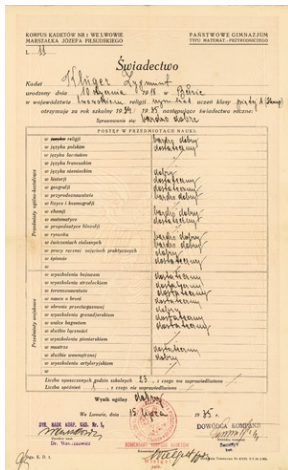 KORPUS KADETÓW NR 1 WE LWOWIE
MARSZAŁKA JÓZEFA PIŁSUDSKIEGO
PAŃSTWOWE GIMNAZJUM
TYPU MATEMAT.-PRZYRODNICZEGO
L. 11
Świadectwo
Kadet Klüger Zygmunt
urodzony dnia 10 stycznia 1918 w
w województwie lwowskiem religji rzym. kat. uczeń klasy piątej
otrzymuje za rok szkolny 1934/35 następujące świadectwo roczne:
Sprawowanie się: bardzo dobre
POSTĘP W PRZEDMIOTACH NAUKI:
Przedmioty ogólno-kształcące
w nauce religji bardzo dobry
w języku polskim dostateczny
w języku łacińskim
w języku francuskim
w języku niemieckim dobry
w historji dostateczny
w geografji dobry
w przyrodoznawstwie bardzo dobry
w fizyce i kosmografji
w chemji bardzo dobry
w matematyce dostateczny
w propedeutyce filozofji
w rysunku bardzo dobry
w ćwiczeniach cielesnych bardzo dobry
w pracy ręcznej zajęciach praktycznych dobry
w śpiewie dostateczny
Przedmioty wojskowe
w wyszkoleniu bojowem dostateczny
w wyszkoleniu strzeleckiem dostateczny
w terenoznawstwie dostateczny
w nauce o broni dostateczny
w obronie przeciwgazowej dostateczny
w wyszkoleniu grenadjerskiem dobry
w walce bagnetem dostateczny
w służbie łączności dostateczny
w wyszkoleniu pionierskiem
w musztrze dostateczny
w służbie wewnętrznej dobry
w wyszkoleniu artyleryjskiem
Liczba opuszczonych godzin szkolnych 23 z czego nie usprawiedliwiono
Liczba spóźnień z czego nie usprawiedliwiono
Wynik ogólny dobry
We Lwowie, dnia 15 lipca 1935
DOWÓDCA KOMPANJI